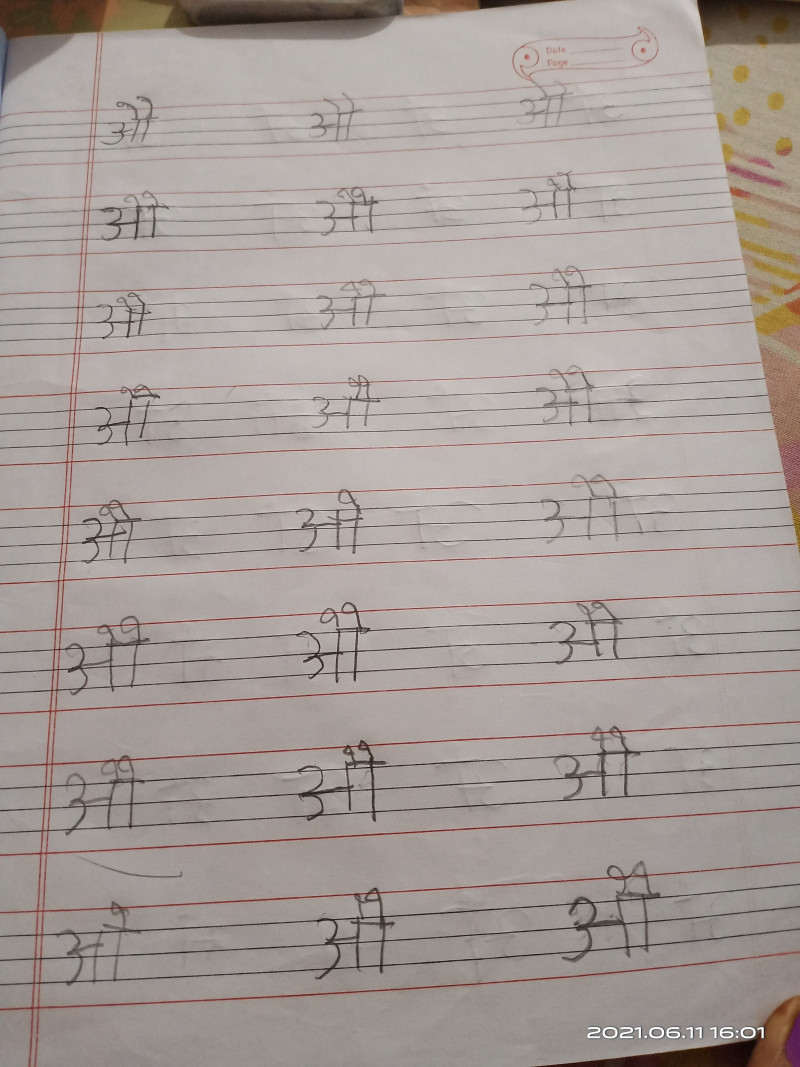 Date
Page
औ औ औ
औ औ औ
औ औ औ
औ औ औ
औ ओ औ
औ औ औ
औ औ औ
ओ औ औ
2021.06.11 16:01